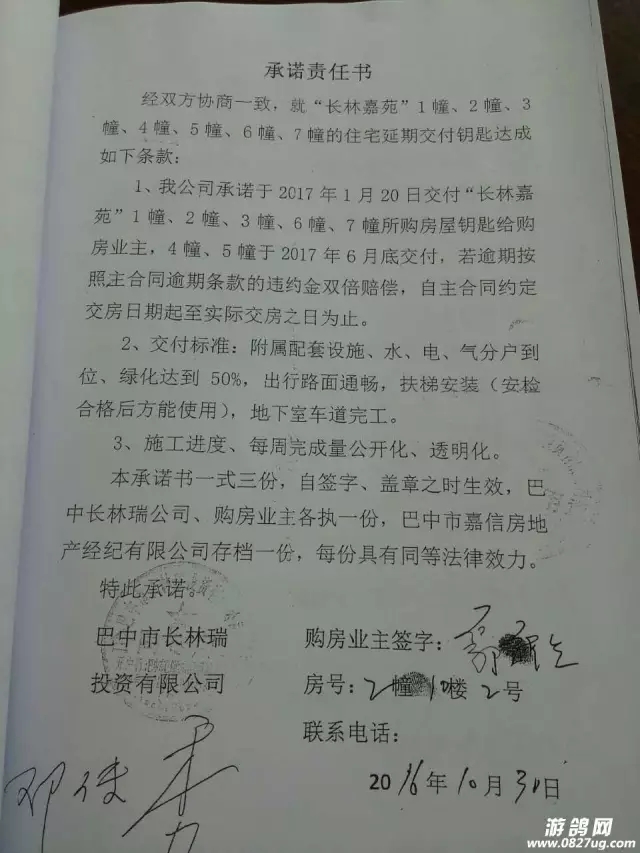 承诺责任书
经双方协商一致，就“长林嘉苑”1幢、2幢、3
幢、4幢、5幢、6幢、7幢的住宅延期交付钥匙达成
如下条款：
1、我公司承诺于2017年1月20日交付“长林嘉
苑”1幢、2幢、3幢、6幢、7幢所购房屋钥匙给购
房业主，4幢、5幢于2017年6月底交付，若逾期按
照主合同逾期条款的违约金双倍赔偿，自主合同约定
交房日期起至实际交房之日为止。
2、交付标准：附属配套设施、水、电、气分户到
位、绿化达到 50%，出行路面通畅，扶梯安装（安检
合格后方能使用），地下室车道完工。
3、施工进度、每周完成量公开化、透明化。
本承诺书一式三份，自签字、盖章之时生效，巴
中长林瑞公司、购房业主各执一份，巴中市嘉信房地
产经纪有限公司存档一份，每份具有同等法律效力。
特此承诺。
巴中市长林瑞 购房业主签字：
投资有限公司 房号：2幢 楼2号
联系电话：
2016年10月30日
游鸽网
www.0827ug.com